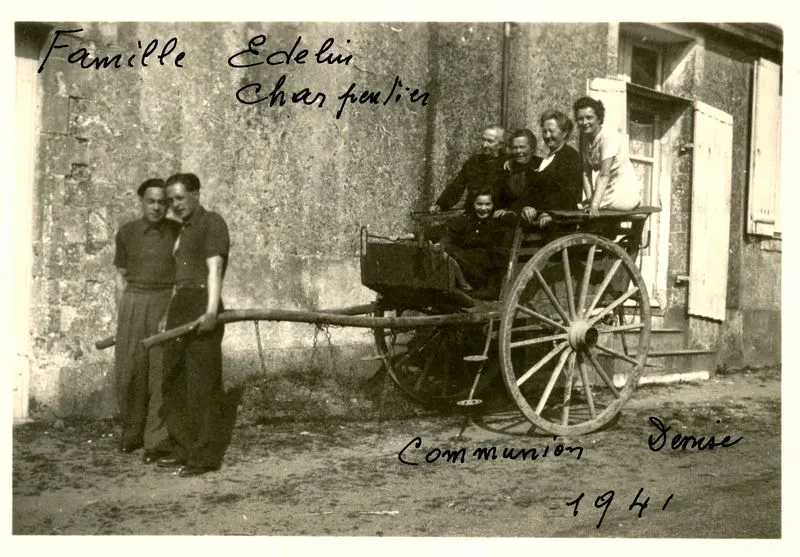 Famille Edelin
Charpentier
Communion Denise
1941